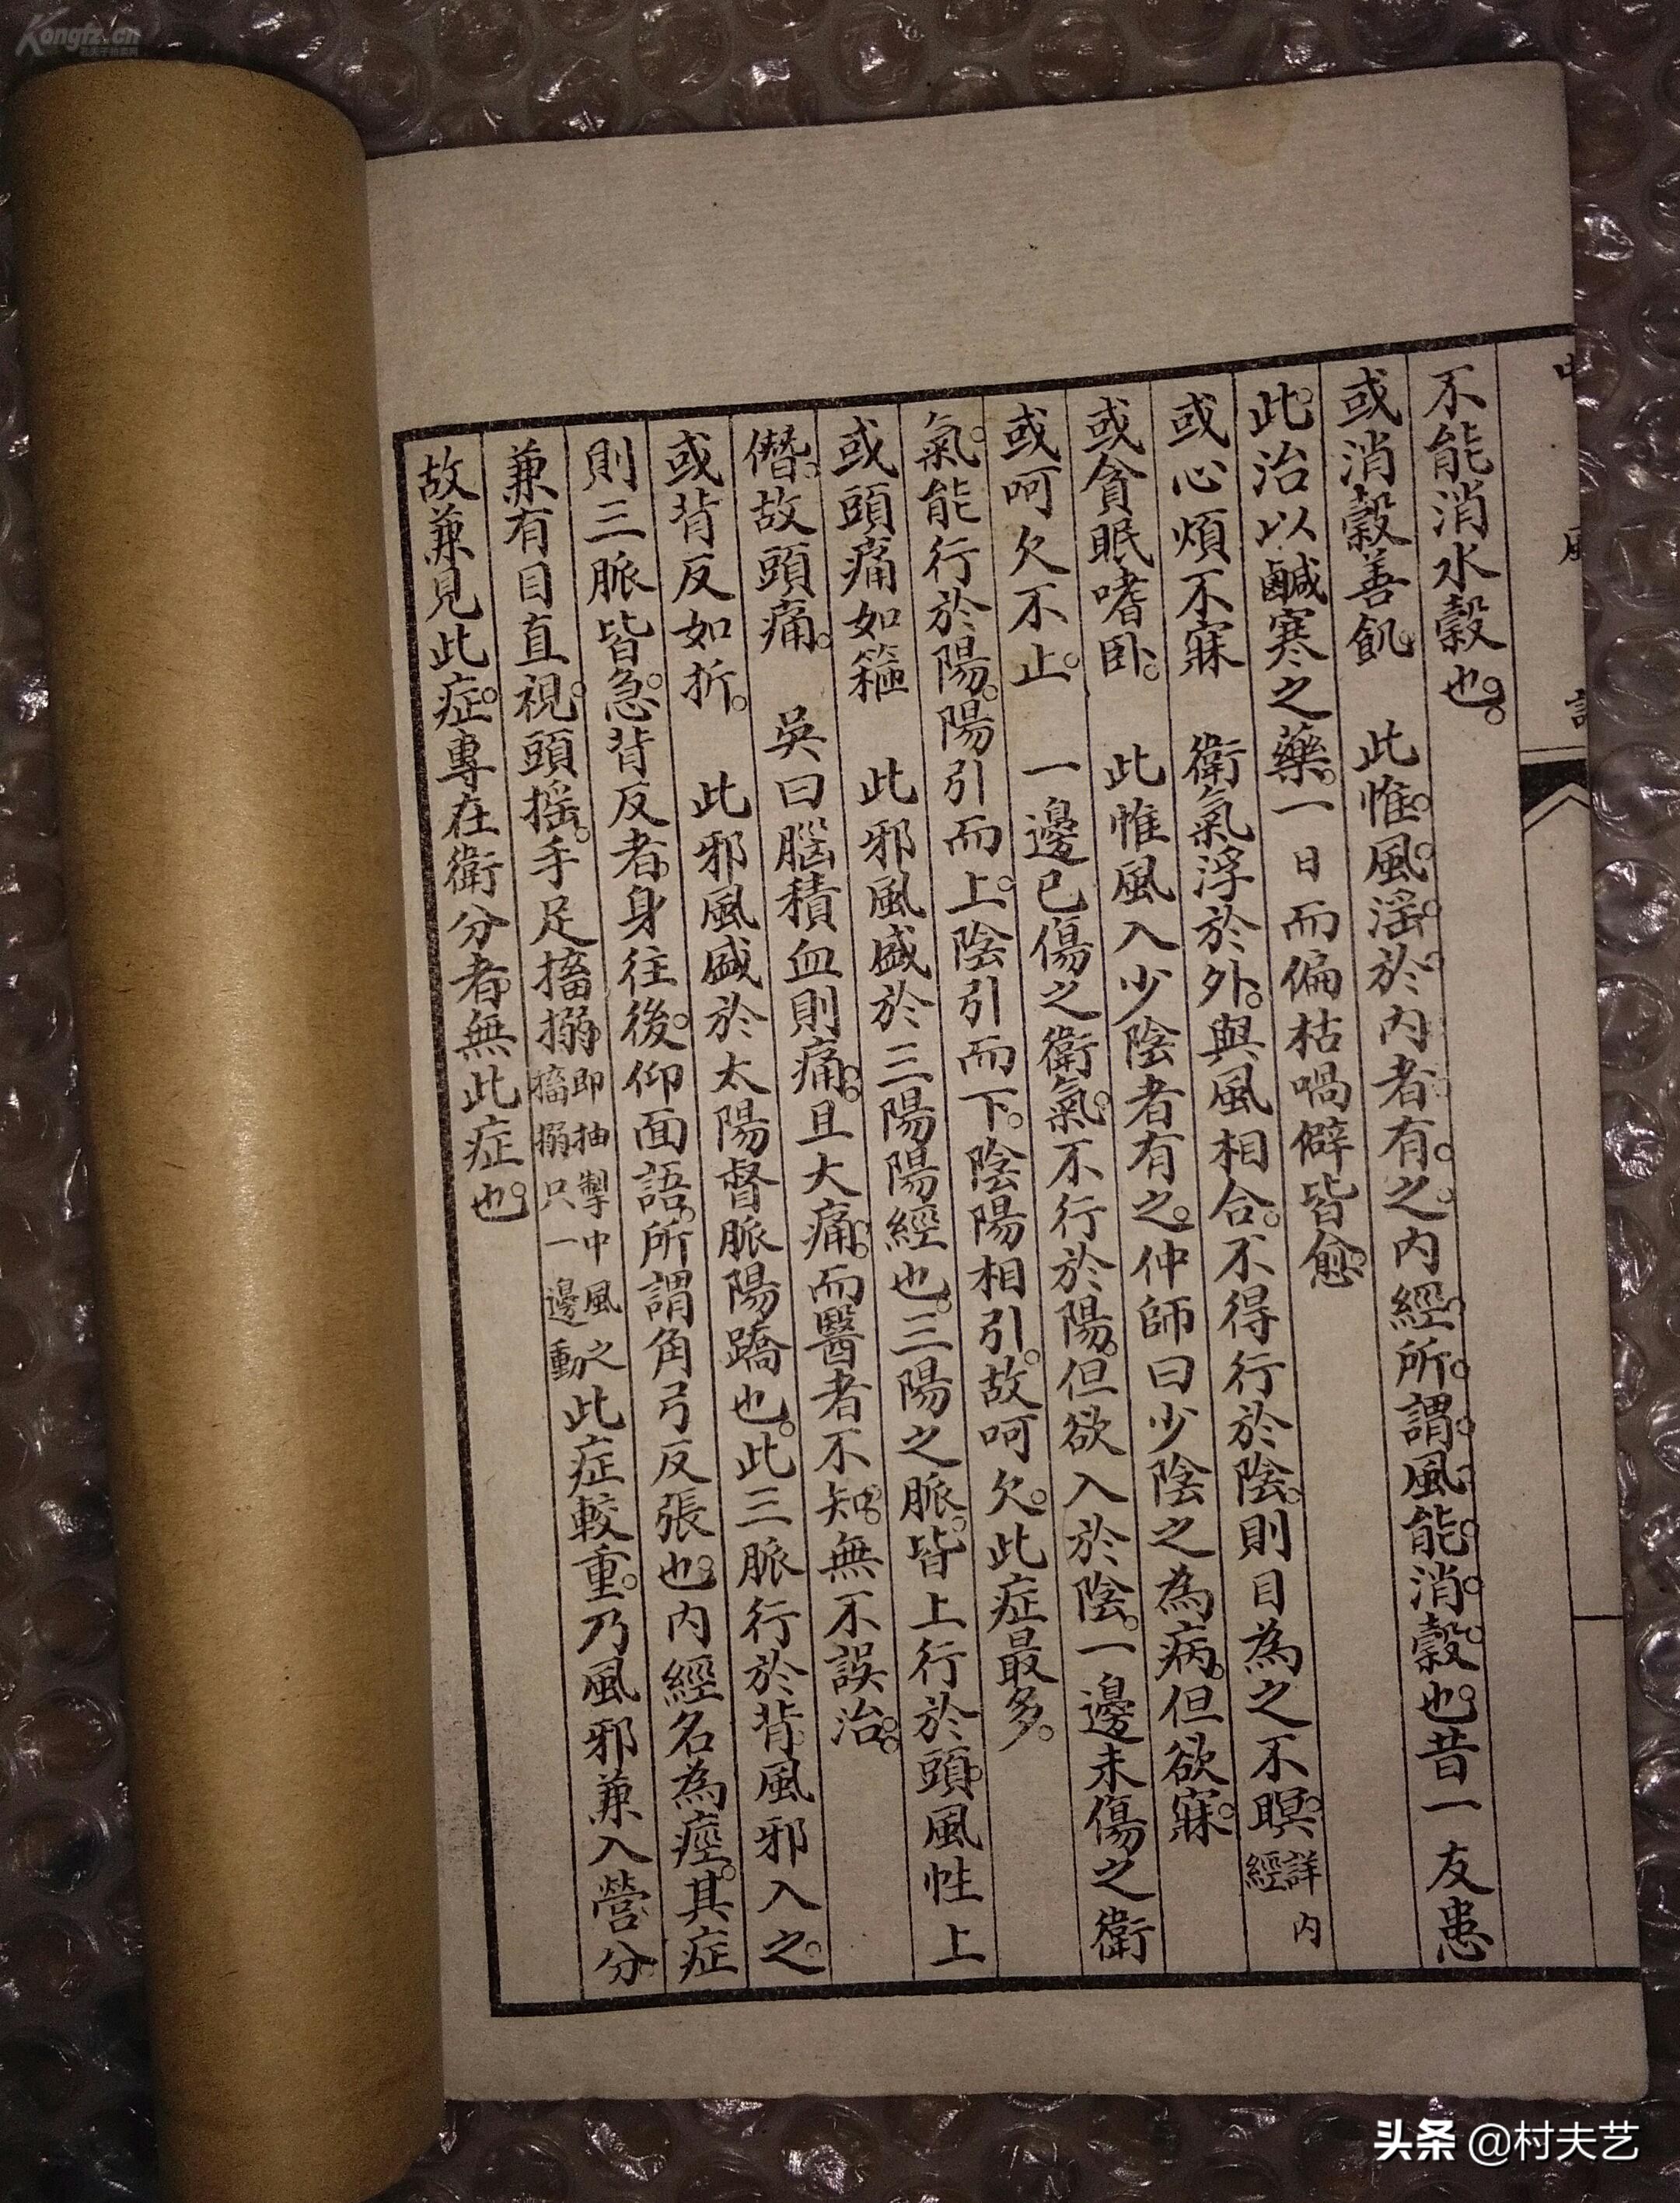 Kongfz.cn
不能消水穀也
或消穀善飢　此惟風淫於內者有之內經所謂風能消穀也昔一友患
此治以鹹寒之藥一日而偏枯喎僻皆愈
或心煩不寐　衛氣浮於外與風相合不得行於陰則目為之不瞑詳內經
或貪眠嗜卧　此惟風入少陰者有之仲師曰少陰之為病但欲寐
或呵欠不止　一邊已傷之衛氣不行於陽但欲入於陰一邊未傷之衛
氣能行於陽陽引而上陰引而下陰陽相引故呵欠此症最多
或頭痛如箍　此邪風盛於三陽陽經也三陽之脈皆上行於頭風性上
僭故頭痛　吳曰腦積血則痛且大痛而醫者不知無不誤治
或背反如折　此邪風盛於太陽督脈陽蹻也此三脈行於背風邪入之
則三脈皆急背反者身往後仰面語所謂角弓反張也內經名為痙其症
兼有目直視頭搖手足搐搦即抽掣中風之搐搦只一邊動此症較重乃風邪兼入營分
故兼見此症專在衛分者無此症也
头条 @村夫艺